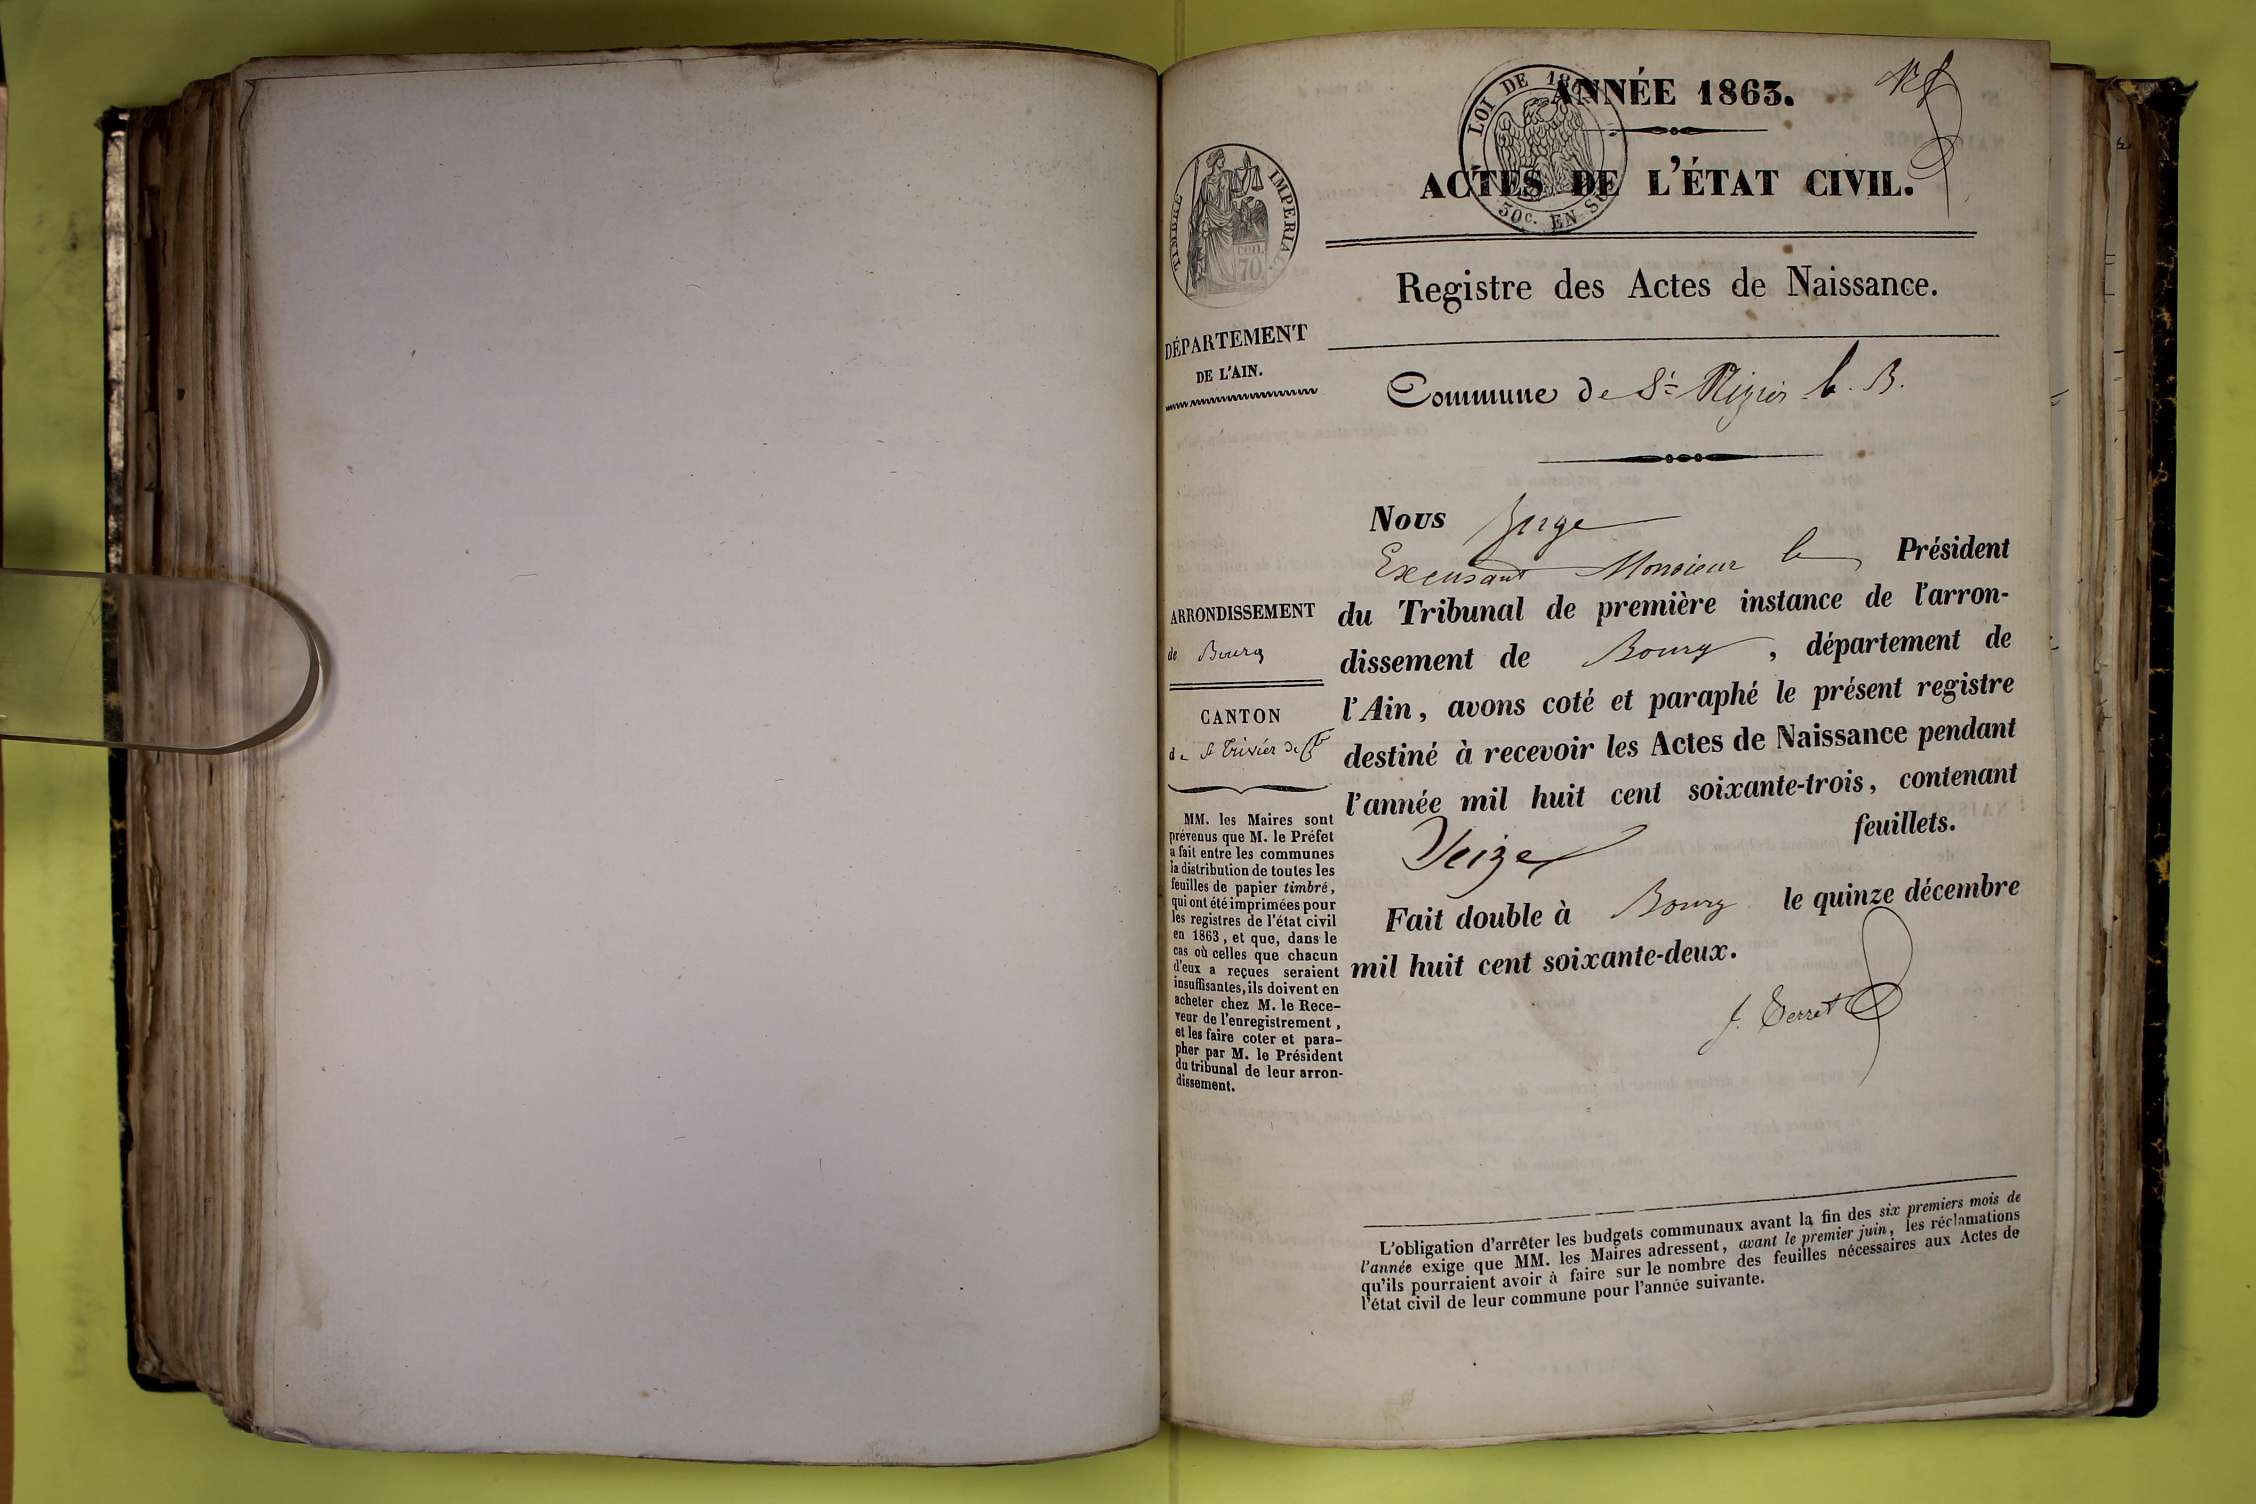 ANNÉE 1863.
LOI DE 18
50c. EN SUS
ACTES DE L'ÉTAT CIVIL.
TIMBRE IMPERIAL.
cen.
70.
Registre des Actes de Naissance.
DÉPARTEMENT
DE L'AIN.
Commune de St Nizier b. B.
Nous Juge
Excusant Monsieur le Président
du Tribunal de première instance de l'arron-
dissement de Bourg, département de
l'Ain, avons coté et paraphé le présent registre
destiné à recevoir les Actes de Naissance pendant
l'année mil huit cent soixante-trois, contenant
Seize feuillets.
Fait double à Bourg le quinze décembre
mil huit cent soixante-deux.
J. Perret
ARRONDISSEMENT
de Bourg
CANTON
de St Trivier de
MM. les Maires sont
prévenus que M. le Préfet
a fait entre les communes
la distribution de toutes les
feuilles de papier timbré,
qui ont été imprimées pour
les registres de l'état civil
en 1863, et que, dans le
cas où celles que chacun
d'eux a reçues seraient
insuffisantes, ils doivent en
acheter chez M. le Rece-
veur de l'enregistrement,
et les faire coter et para-
pher par M. le Président
du tribunal de leur arron-
dissement.
L'obligation d'arrêter les budgets communaux avant la fin des six premiers mois de
l'année exige que MM. les Maires adressent, avant le premier juin, les réclamations
qu'ils pourraient avoir à faire sur le nombre des feuilles nécessaires aux Actes de
l'état civil de leur commune pour l'année suivante.